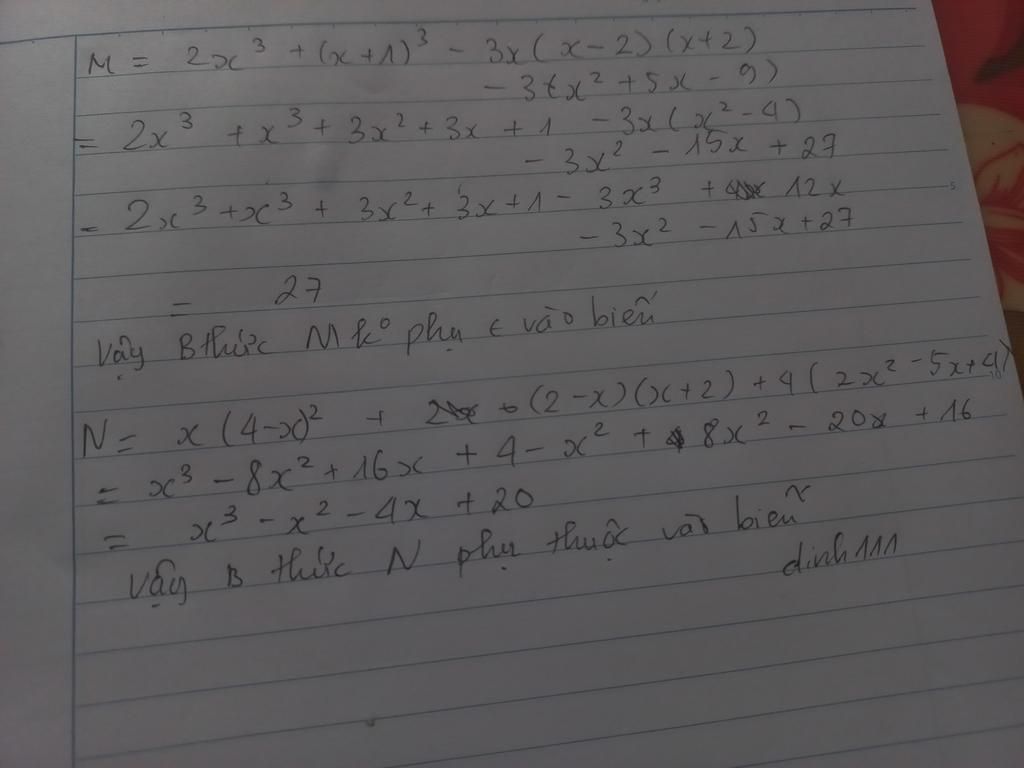 M = 2x³ + (x+1)³ - 3x(x-2)(x+2)
- 3(x² + 5x - 9)
= 2x³ + x³ + 3x² + 3x + 1 - 3x(x² - 4)
- 3x² - 15x + 27
= 2x³ + x³ + 3x² + 3x + 1 - 3x³ + 12x
- 3x² - 15x + 27
= 27
Vậy B thức M k° phụ t vào biến
N = x(4-x)² + (2-x)(x+2) + 4(2x² - 5x + 4)
= x³ - 8x² + 16x + 4 - x² + 8x² - 20x + 16
= x³ - x² - 4x + 20
Vậy B thức N phụ thuộc vào biến
dinh111